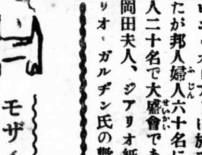 たが邦人婦人六十名に
人二十名で大盛會で
岡田夫人、ジアリオ紙
リオ・ガルヂン氏の
モザイ